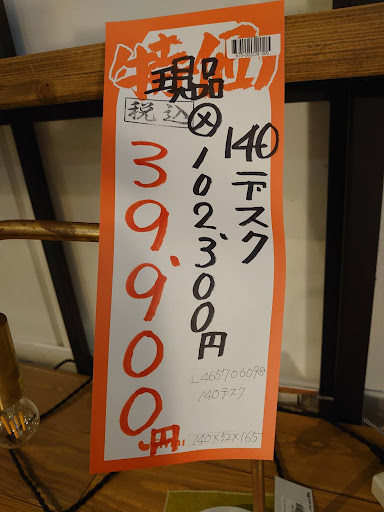 特価
現品
税込
140デスク
㋱102,300円
39,900円
L465706098
140デスク
140×52×165